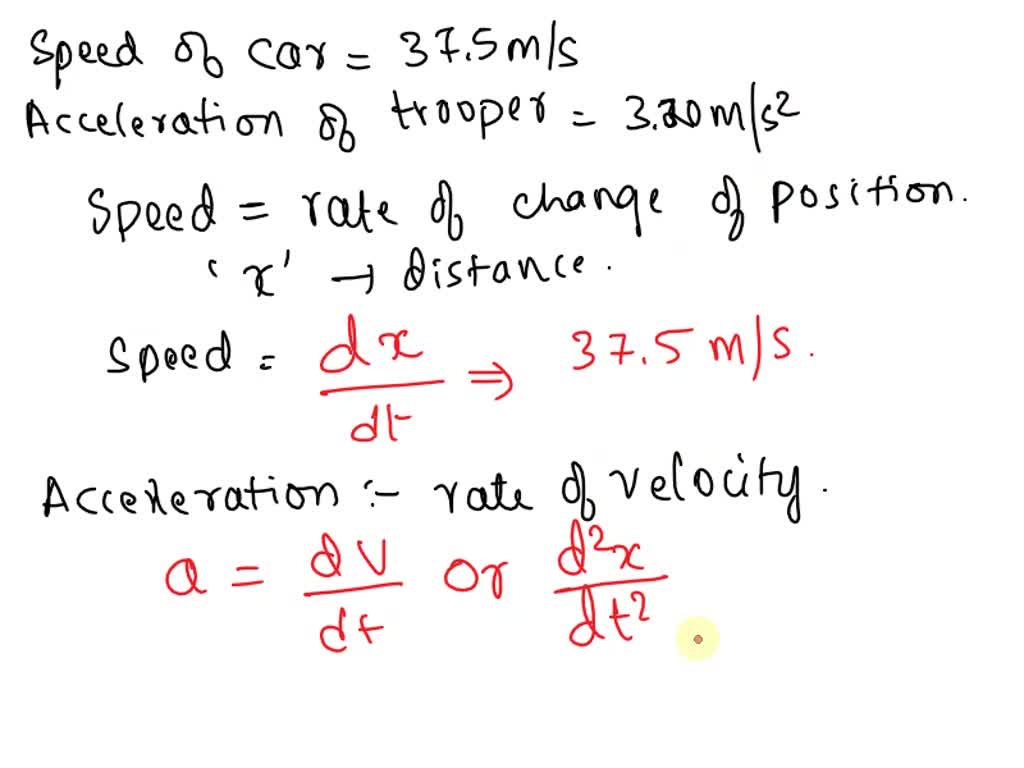 Speed of car = 37.5 m/s
Acceleration of trooper = 3.20 m/s²
Speed = rate of change of position.
'x' → distance.
Speed = dx/dt ⇒ 37.5 m/s.
Acceleration :- rate of velocity.
a = dV/dt or d²x/dt²